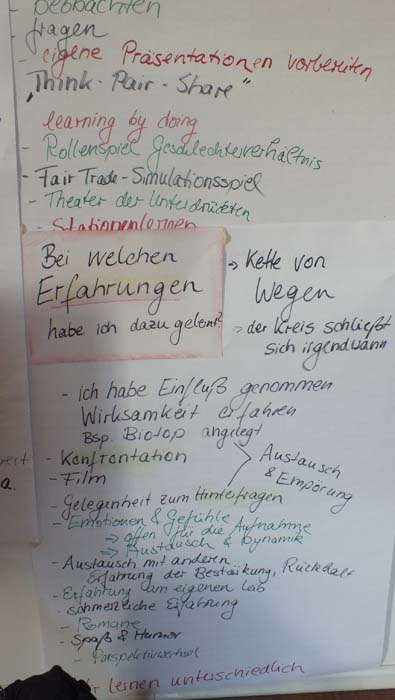 - beobachten
- fragen
- eigene Präsentationen vorbereiten
„Think - Pair - Share"
learning by doing
- Rollenspiel Geschlechterverhältnis
- Fair Trade - Simulationsspiel
- Theater der Unterdrückten
- Stationenlernen
Bei welchen
Erfahrungen
habe ich dazugelernt?
→ Kette von
Wegen
→ der Kreis schließt
sich irgendwann
- ich habe Einfluß genommen
Wirksamkeit erfahren
Bsp. Biotop angelegt
- Konfrontation
- Film
- Gelegenheit zum Hinterfragen
Austausch
& Empörung
- Emotionen & Gefühle
⇒ offen für die Aufnahme
⇒ Austausch & Dynamik
- Austausch mit andern
Erfahrung der Bestärkung, Rückhalt
- Erfahrung am eigenen Leib
- schmerzliche Erfahrung
- Romane
- Spaß & Humor
- Perspektivwechsel
wir lernen unterschiedlich